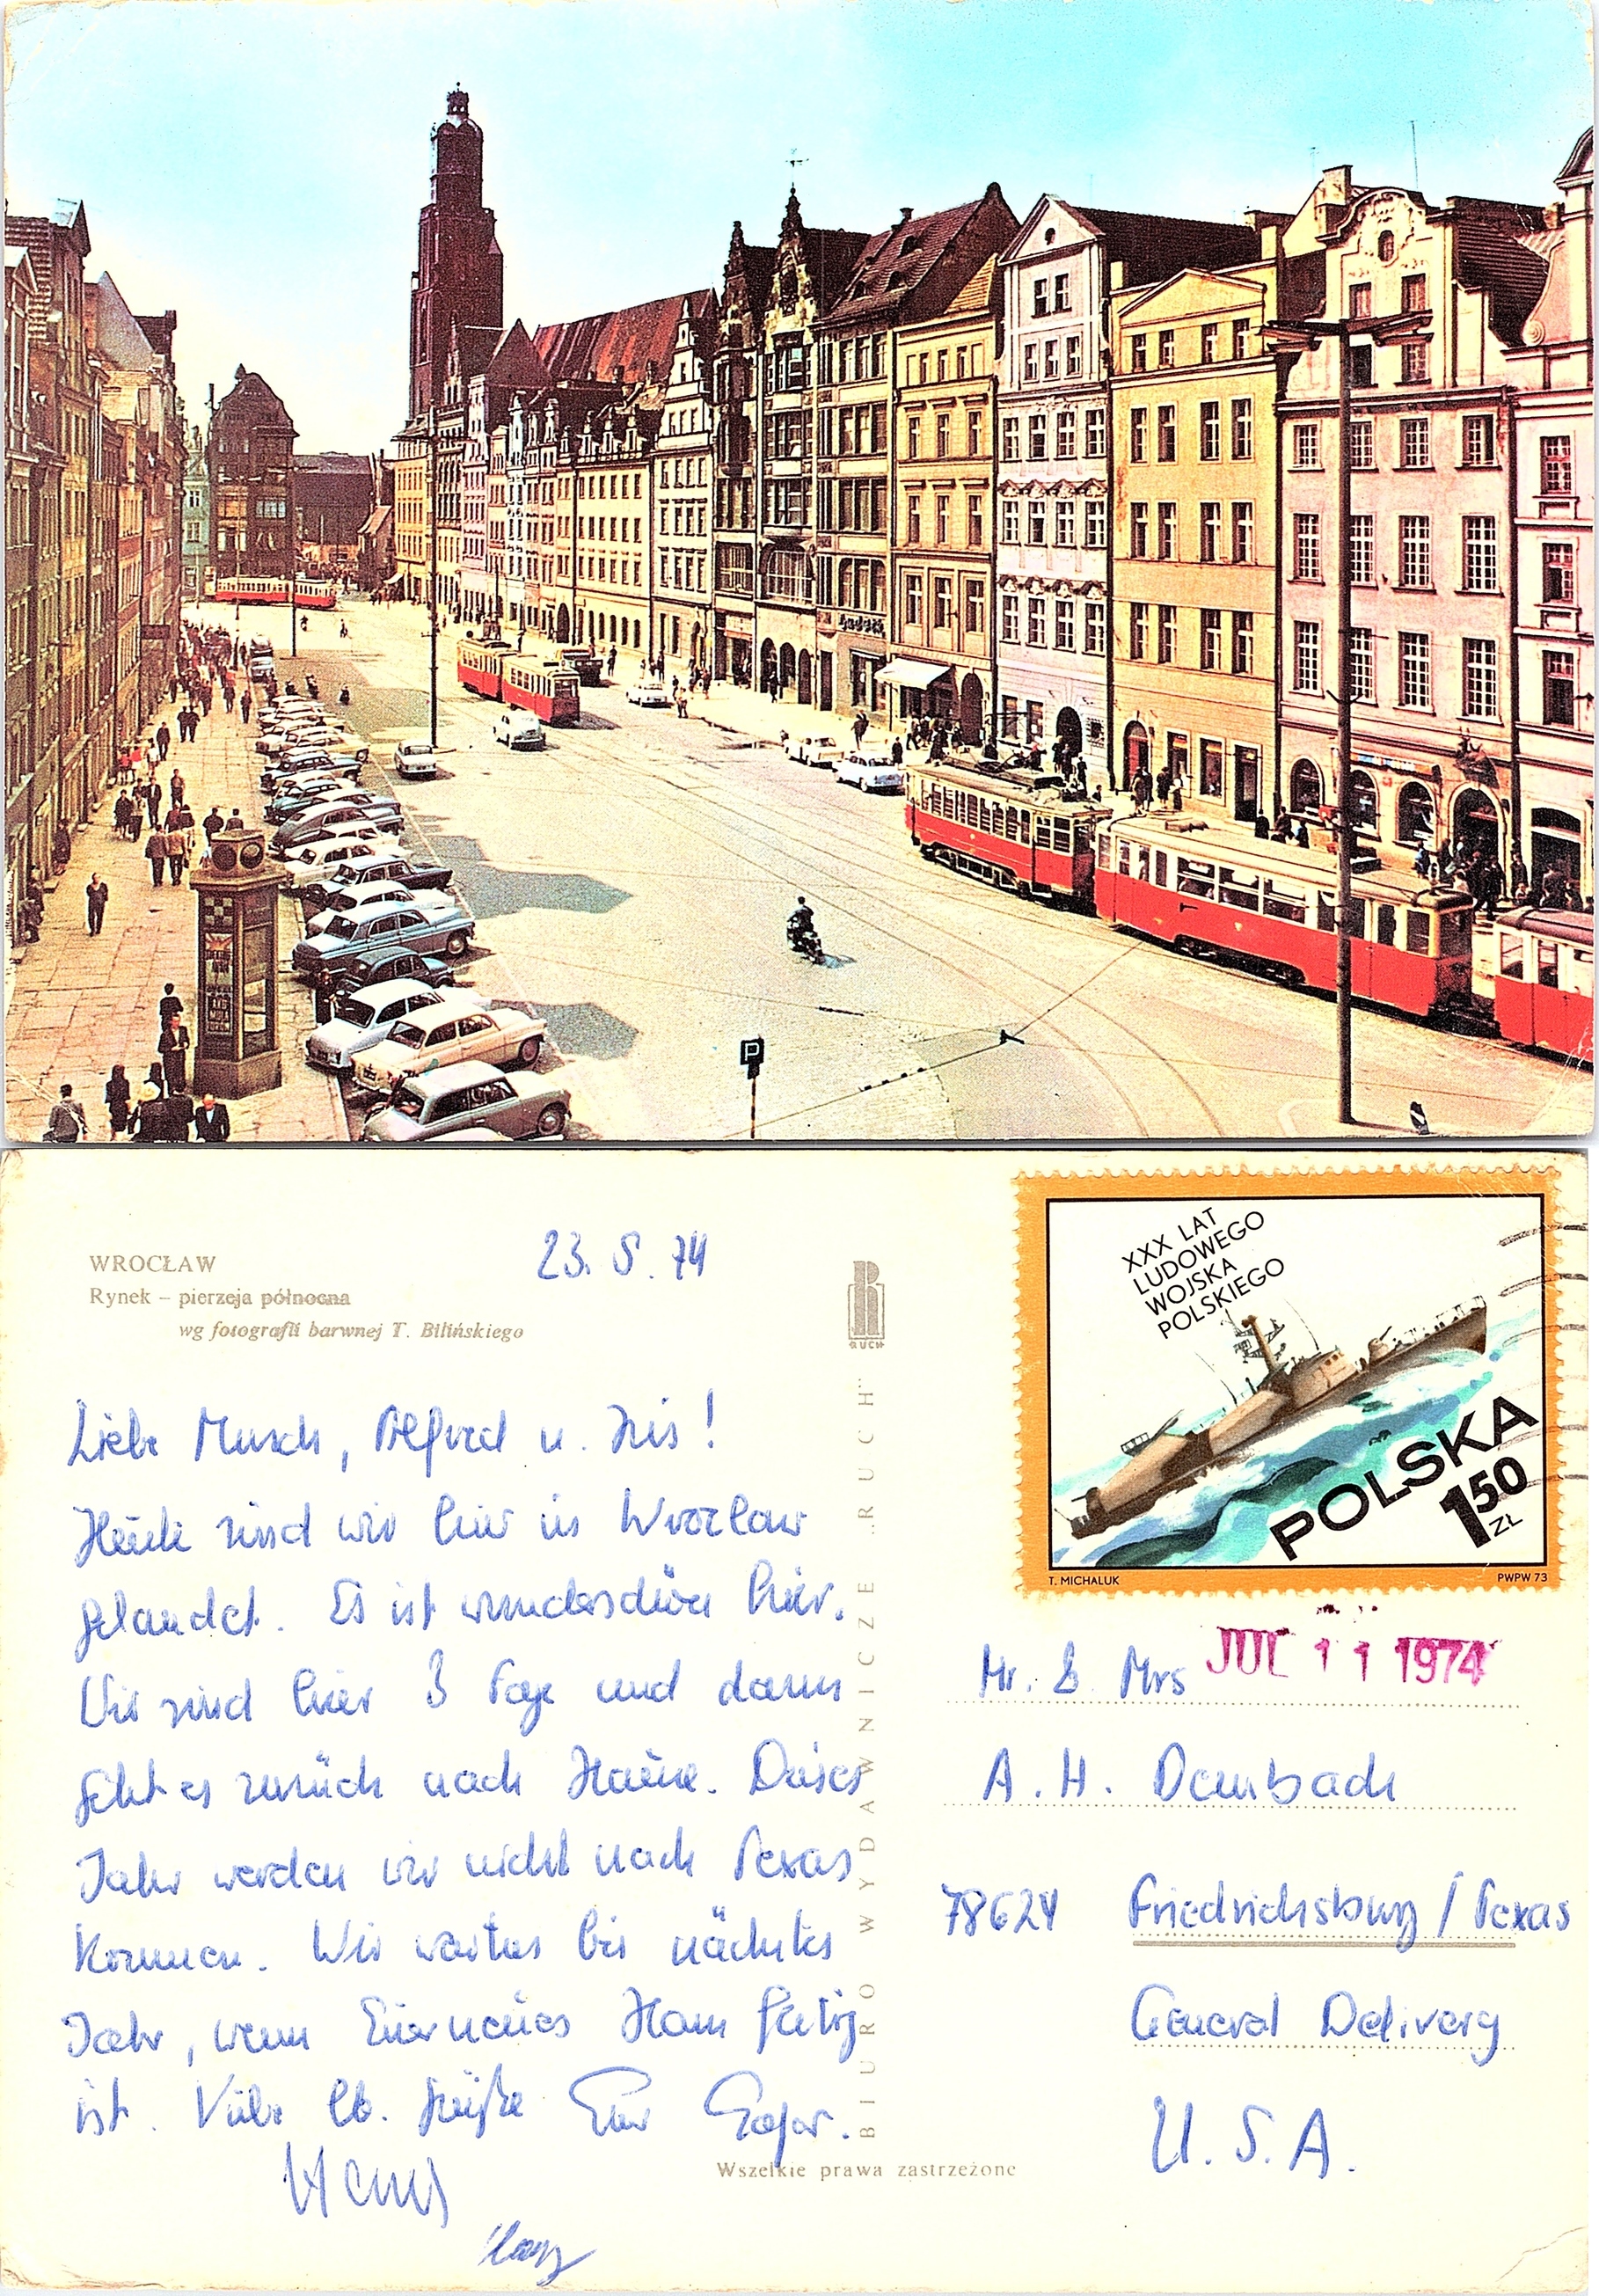 P
WROCŁAW
Rynek – pierzeja północna
wg fotografii barwnej T. Bilińskiego
23. 5. 74
RUCH
BIURO WYDAWNICZE „RUCH"
XXX LAT
LUDOWEGO
WOJSKA
POLSKIEGO
POLSKA
150
ZŁ
T. MICHALUK
PWPW 73
JUL 11 1974
Liebe Musch, Alfred u. Iris!
Heute sind wir hier in Wrozlaw
gelandet. Es ist wunderschön hier.
Wir sind hier 3 Tage und dann
geht es zurück nach Hause. Dieses
Jahr werden wir nicht nach Texas
kommen. Wir warten bis nächstes
Jahr, wenn Euer neues Haus fertig
ist. Viele lb. Grüße Eur
Hans
Mr. & Mrs
A. H. Dambach
78624 Friedrichsburg / Texas
General Delivery
U. S. A.
Wszelkie prawa zastrzeżone